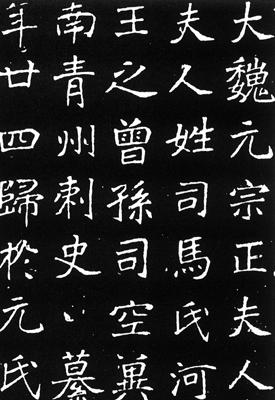 大魏元宗正夫人
夫人姓司馬氏河
王之曾孫司空冀
南青州刺史纂
年廿四歸於元氏